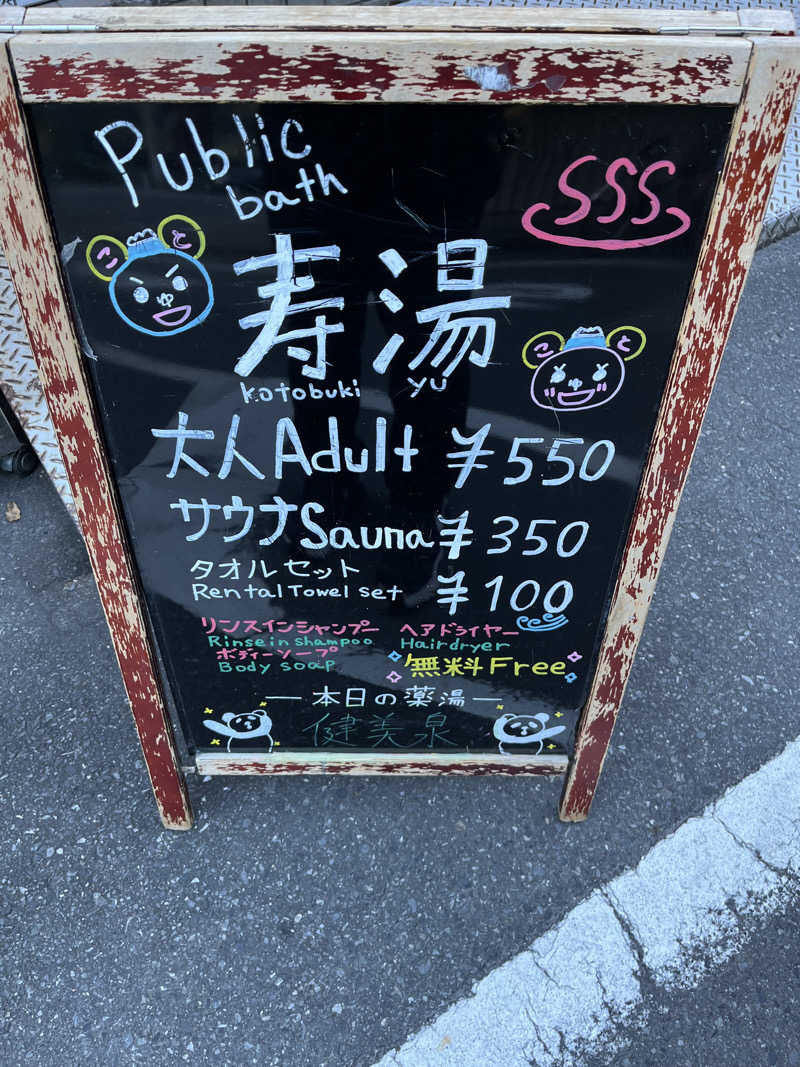 Public
bath
こ と
ゆ
寿湯
kotobuki yu
こ と
ゆ
大人 Adult ¥550
サウナ Sauna ¥350
タオルセット
Rental Towel set ¥100
リンスインシャンプー ヘアドライヤー
Rinse in shampoo Hairdryer
ボディーソープ
Body soap 無料 Free
本日の薬湯
健美泉